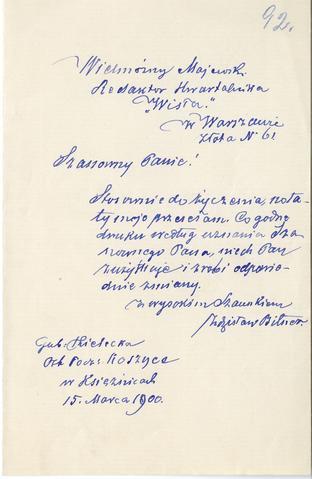 92.
Wielmożny Majewski
Redaktor Kwartalnika
"Wisła."
w Warszawie
Złota N 61
Szanowny Panie!
Stosownie do życzenia, nota-
ty moje przesełam. Co godne
druku według uznania Sza-
nownego Pana, niech Pan
zużytkuje i zrobi odpowie-
dnie zmiany.
Z wysokim Szacunkiem
Zdzisław
Gub. Kielecka
Poczt. Koszyce
w Książnicach
15. Marca 1900.